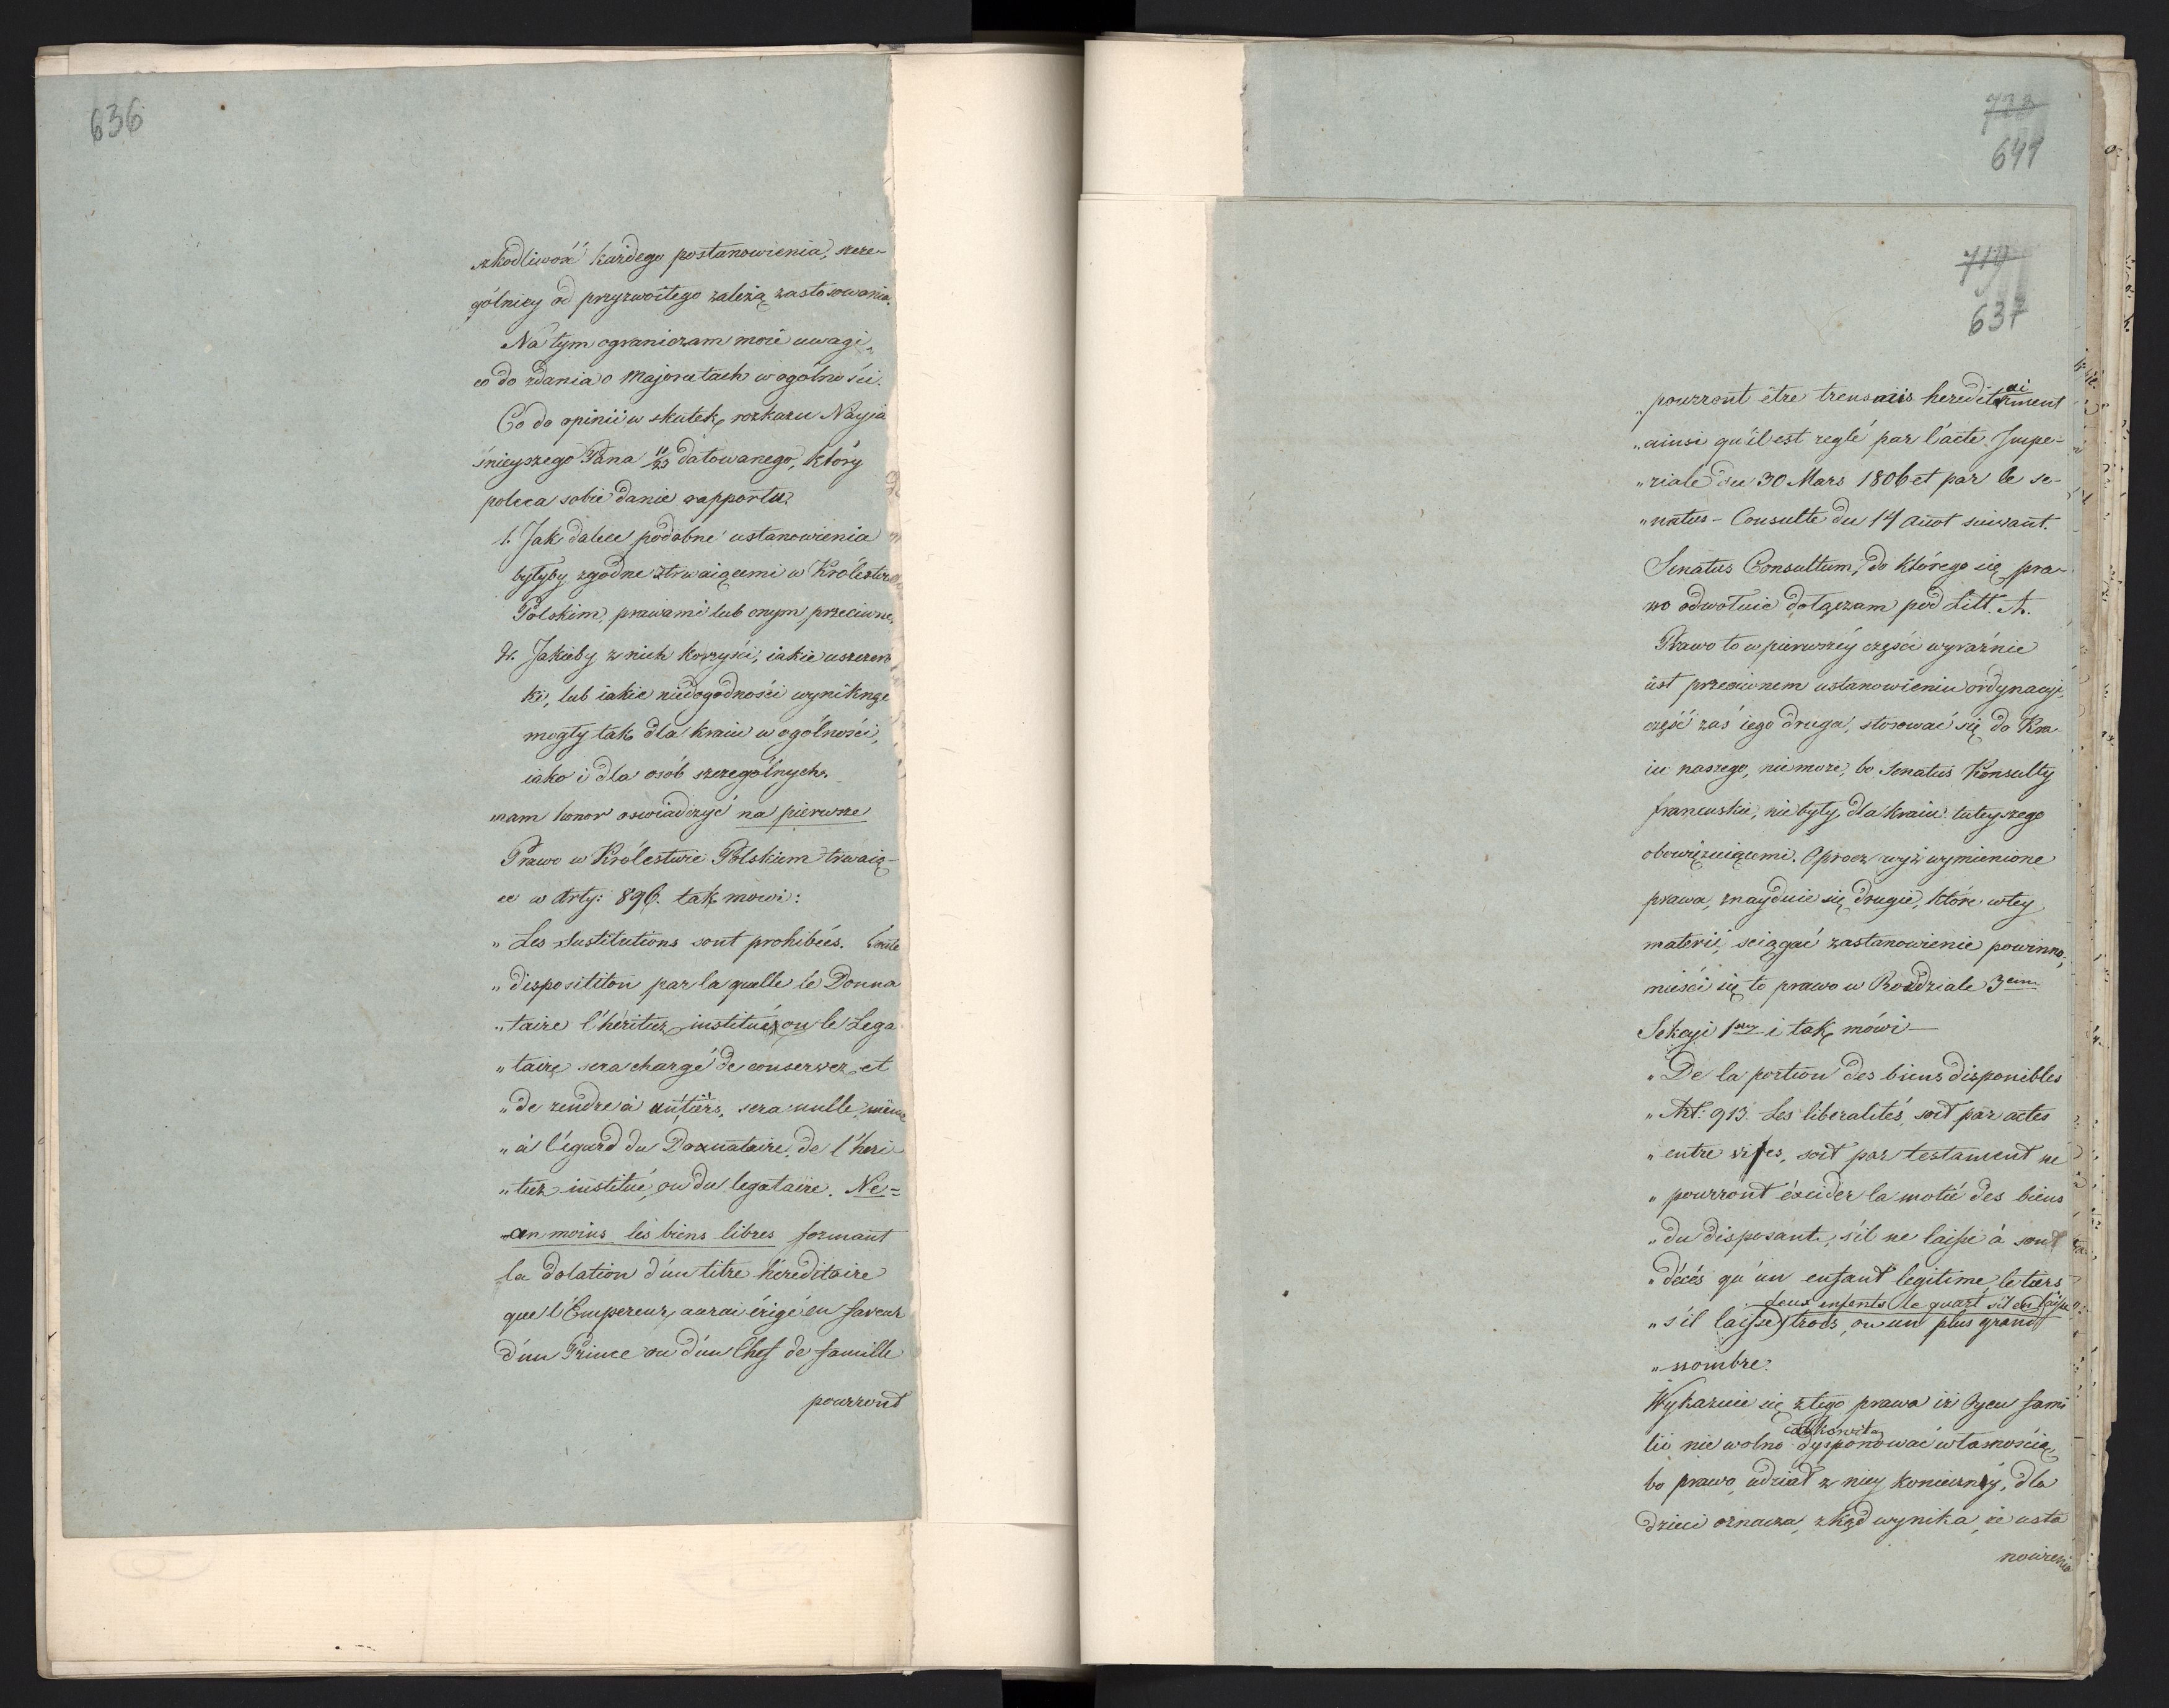 636
szkodliwość każdego postanowienia, szcze-
gólniey od przyzwoitego zależą zastosowania.
Na tym ograniczam moie uwagi,
co do zdania o Majoratach w ogólności.
Co do opinii w skutek rozkazu Nayia
śnieyszego Pana 11/23 datowanego, który
poleca sobie danie rapportu?
1. Jak dalece podobne ustanowienia
byłyby zgodne z trwaiącemi w Królestwie
Polskim, prawami lub onym przeciwne,
2. Jakieby z nich korzyści, iakie uszczerb
ki, lub iakie niedogodności wyniknąć
mogły tak dla kraiu w ogólności,
iako i dla osób szczególnych.
mam honor oswiadczyć na pierwsze
Prawo w Królestwie Polskiem trwaią-
ce w Arty: 896. tak mowi:
„Les Sustitutions sont prohibées. Toute
„disposititon par la quelle le Donna
„taire l'héritier institué, ou le Lega
„taire sera chargé de conserver et
„de rendre à un tiers, sera nulle, même
„à l'égard du Donnataire, de l'heri
„tier institué, ou du legataire. Ne=
„an moins les biens libres formant
la dotation d'un titre héreditaire
que l'Empereur aurai érigé en faveur
d'un Prince ou d'un Chef de famille
pourront
723
641
719
637
„pourront être transmis hereditairment
„ainsi qu'il est reglé par l'acte Impe-
„riale du 30 Mars 1806 et par le se-
„natus-Consulte du 14 Auot suivant.
Senatus Consultum, do którego się pra-
wo odwołuie dołączam pod Litt. A.
Prawo to w pierwszéy części wyraźnie
iest przeciwnem ustanowieniu ordynacyi,
część zaś iego druga, stosować się do Kra
iu naszego, nie może, bo Senatus Konsulty
francuskie, nie były dla kraiu tuteyszego
obowiązuiącemi. Oprocz wyż wymienione
prawa, znayduie się drugie, które w tey
materii, sciągać zastanowienie powinno,
mieści się to prawo w Rozdziale 3em
Sekcyi 1szey i tak mówi—
„De la portion des biens disponibles
„Art: 913. Les liberalités, soit par actes
„entre vifes, soit par testament ne
„pourront éxcider la motié des biens
„du disposant, s'il ne laisse à sont
„décés qu'un enfant legitime le tiers
deux enfents le quart s'il en laisse
„s'il laisse trois, ou un plus grand
„nombre.
Wykazuie się z tego prawa iż Oycu fami
lii nie wolno całkowitą dysponować własnością,
bo prawo udział z niey konieczny, dla
dzieci oznacza, zkąd wynika, że usta
nowienia